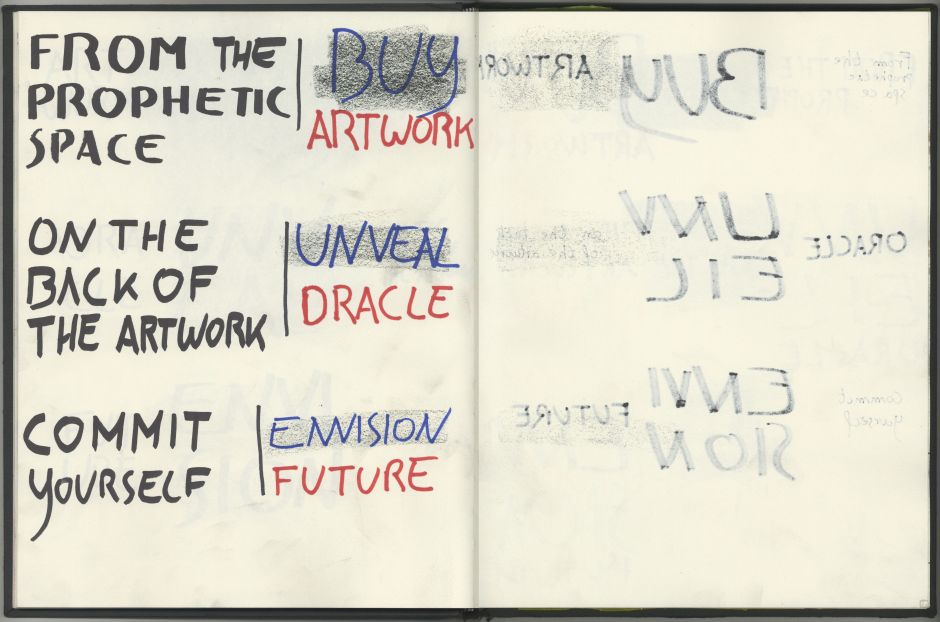 FROM THE
PROPHETIC
SPACE
BUY
ARTWORK
ON THE
BACK OF
THE ARTWORK
UNVEAL
DRACLE
COMMIT
YOURSELF
ENVISION
FUTURE
BUY ARTWORK
From the
Prophetic
space
UNV
EIL
ORACLE
on the back
of the artwork
ENVI
SION
FUTURE
Commit
yourself